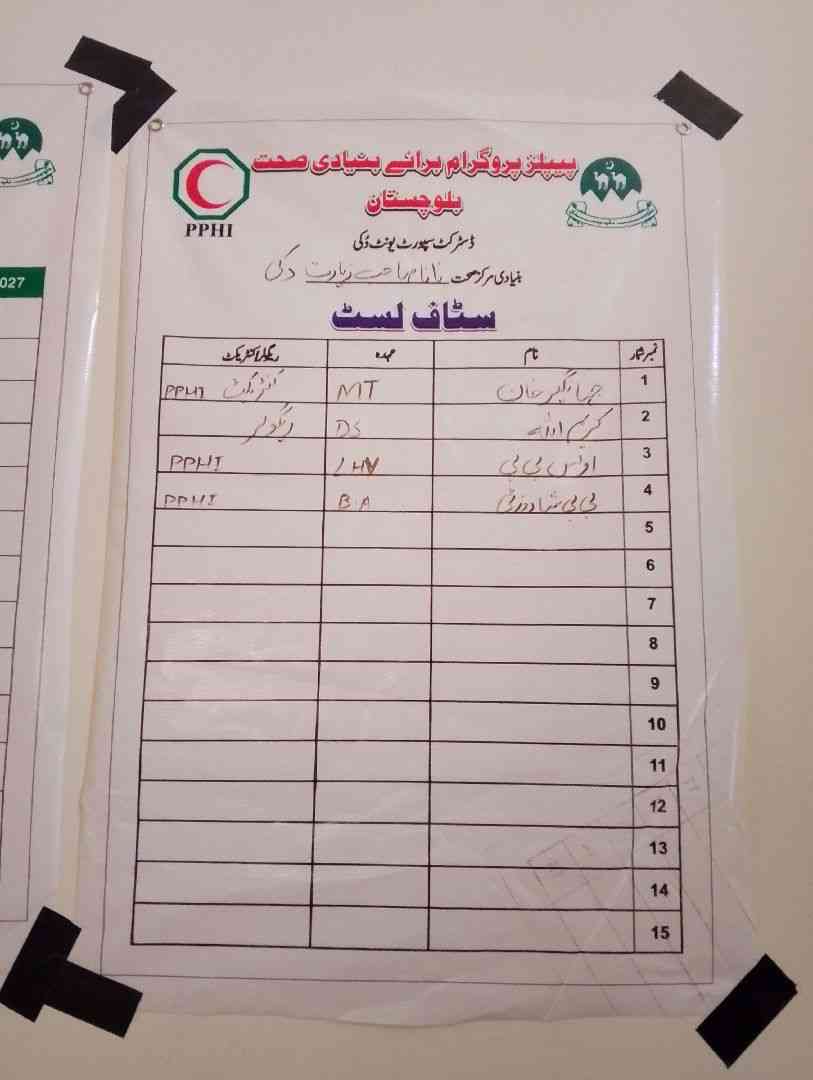 027
پیپلز پروگرام برائے بنیادی صحت
بلوچستان
PPHI
ڈسٹرکٹ سپورٹ یونٹ دُکی
بنیادی مرکز صحت نانا صاحب زیارت دکی
سٹاف لسٹ
نمبر شمار نام عہدہ ریگولر/کنٹریکٹ
1 جہانگیر خان MT کنٹریکٹ PPHI
2 کریم اللہ DS ریگولر
3 بی بی LHV PPHI
4 بی بی BA PPHI
5
6
7
8
9
10
11
12
13
14
15